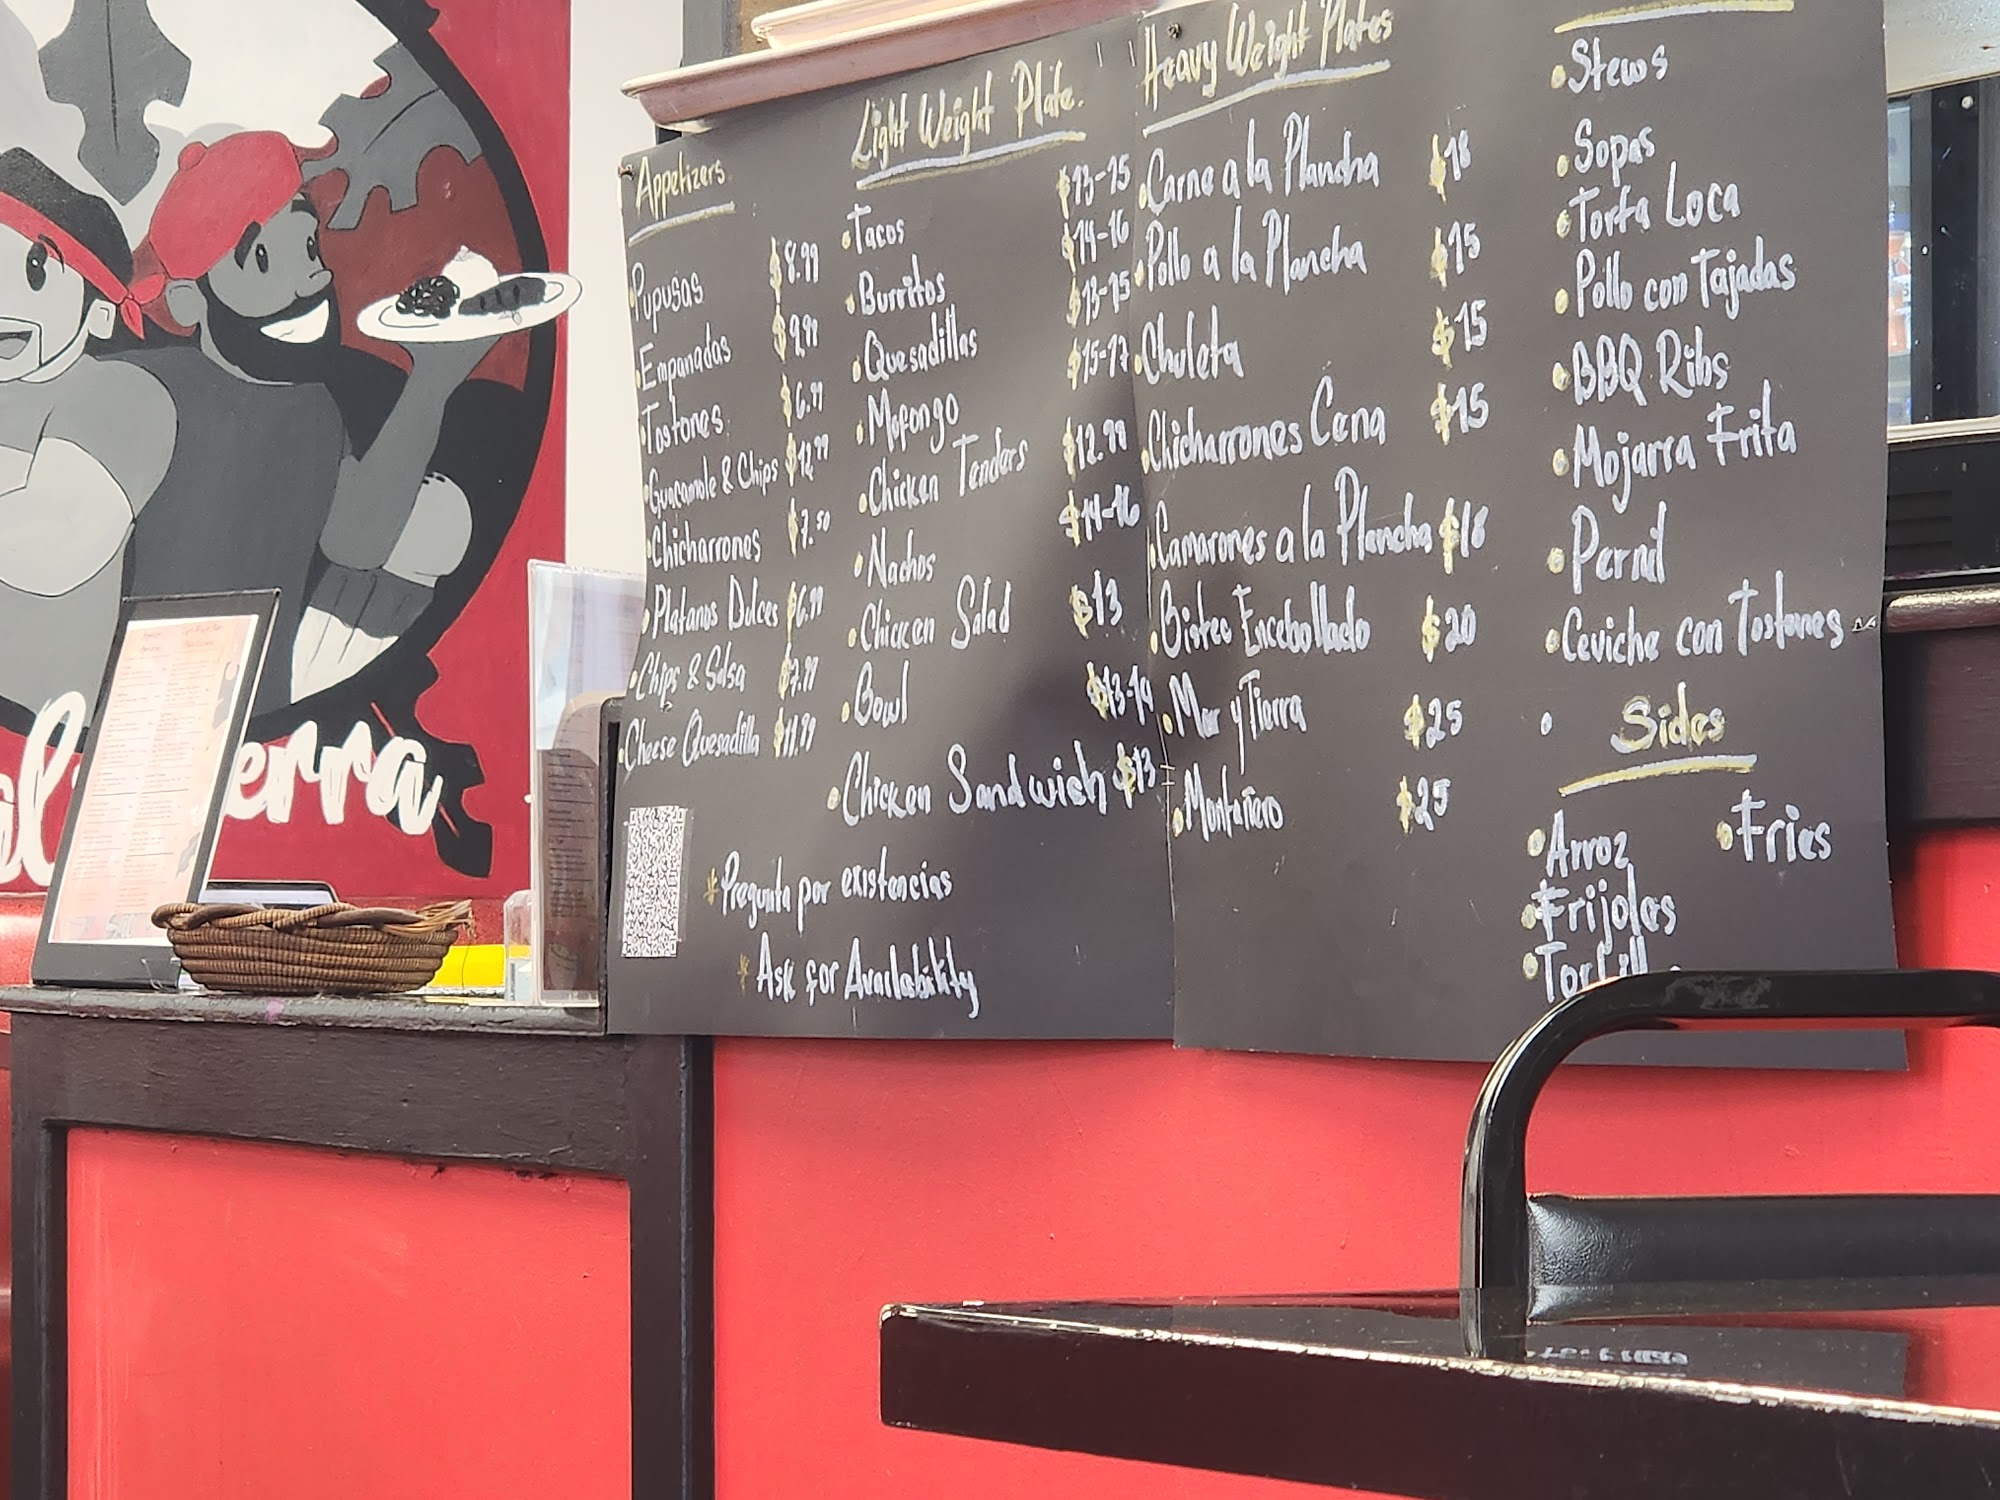 Appetizers
Pupusas $8.99
Empanadas $9.99
Tostones $6.99
Guacamole & Chips $12.99
Chicharrones $7.50
Platanos Dulces $6.99
Chips & Salsa $7.99
Cheese Quesadilla $11.99
Light Weight Plate.
Tacos $13-15
Burritos $14-16
Quesadillas $13-15
Mofongo $15-17
Chicken Tenders $12.99
Nachos $14-16
Chicken Salad $13
Bowl $13-14
Chicken Sandwich $13
* Pregunta por existencias
* Ask for Availability
Heavy Weight Plates
Carne a la Plancha $18
Pollo a la Plancha $15
Chuleta $15
Chicharrones Cena $15
Camarones a la Plancha $18
Bistec Encebollado $20
Mar y Tierra $25
Montañero $25
Stews
Sopas
Torta Loca
Pollo con Tajadas
BBQ Ribs
Mojarra Frita
Pernil
Ceviche con Tostones
Sides
Arroz
Fries
Frijoles
erra